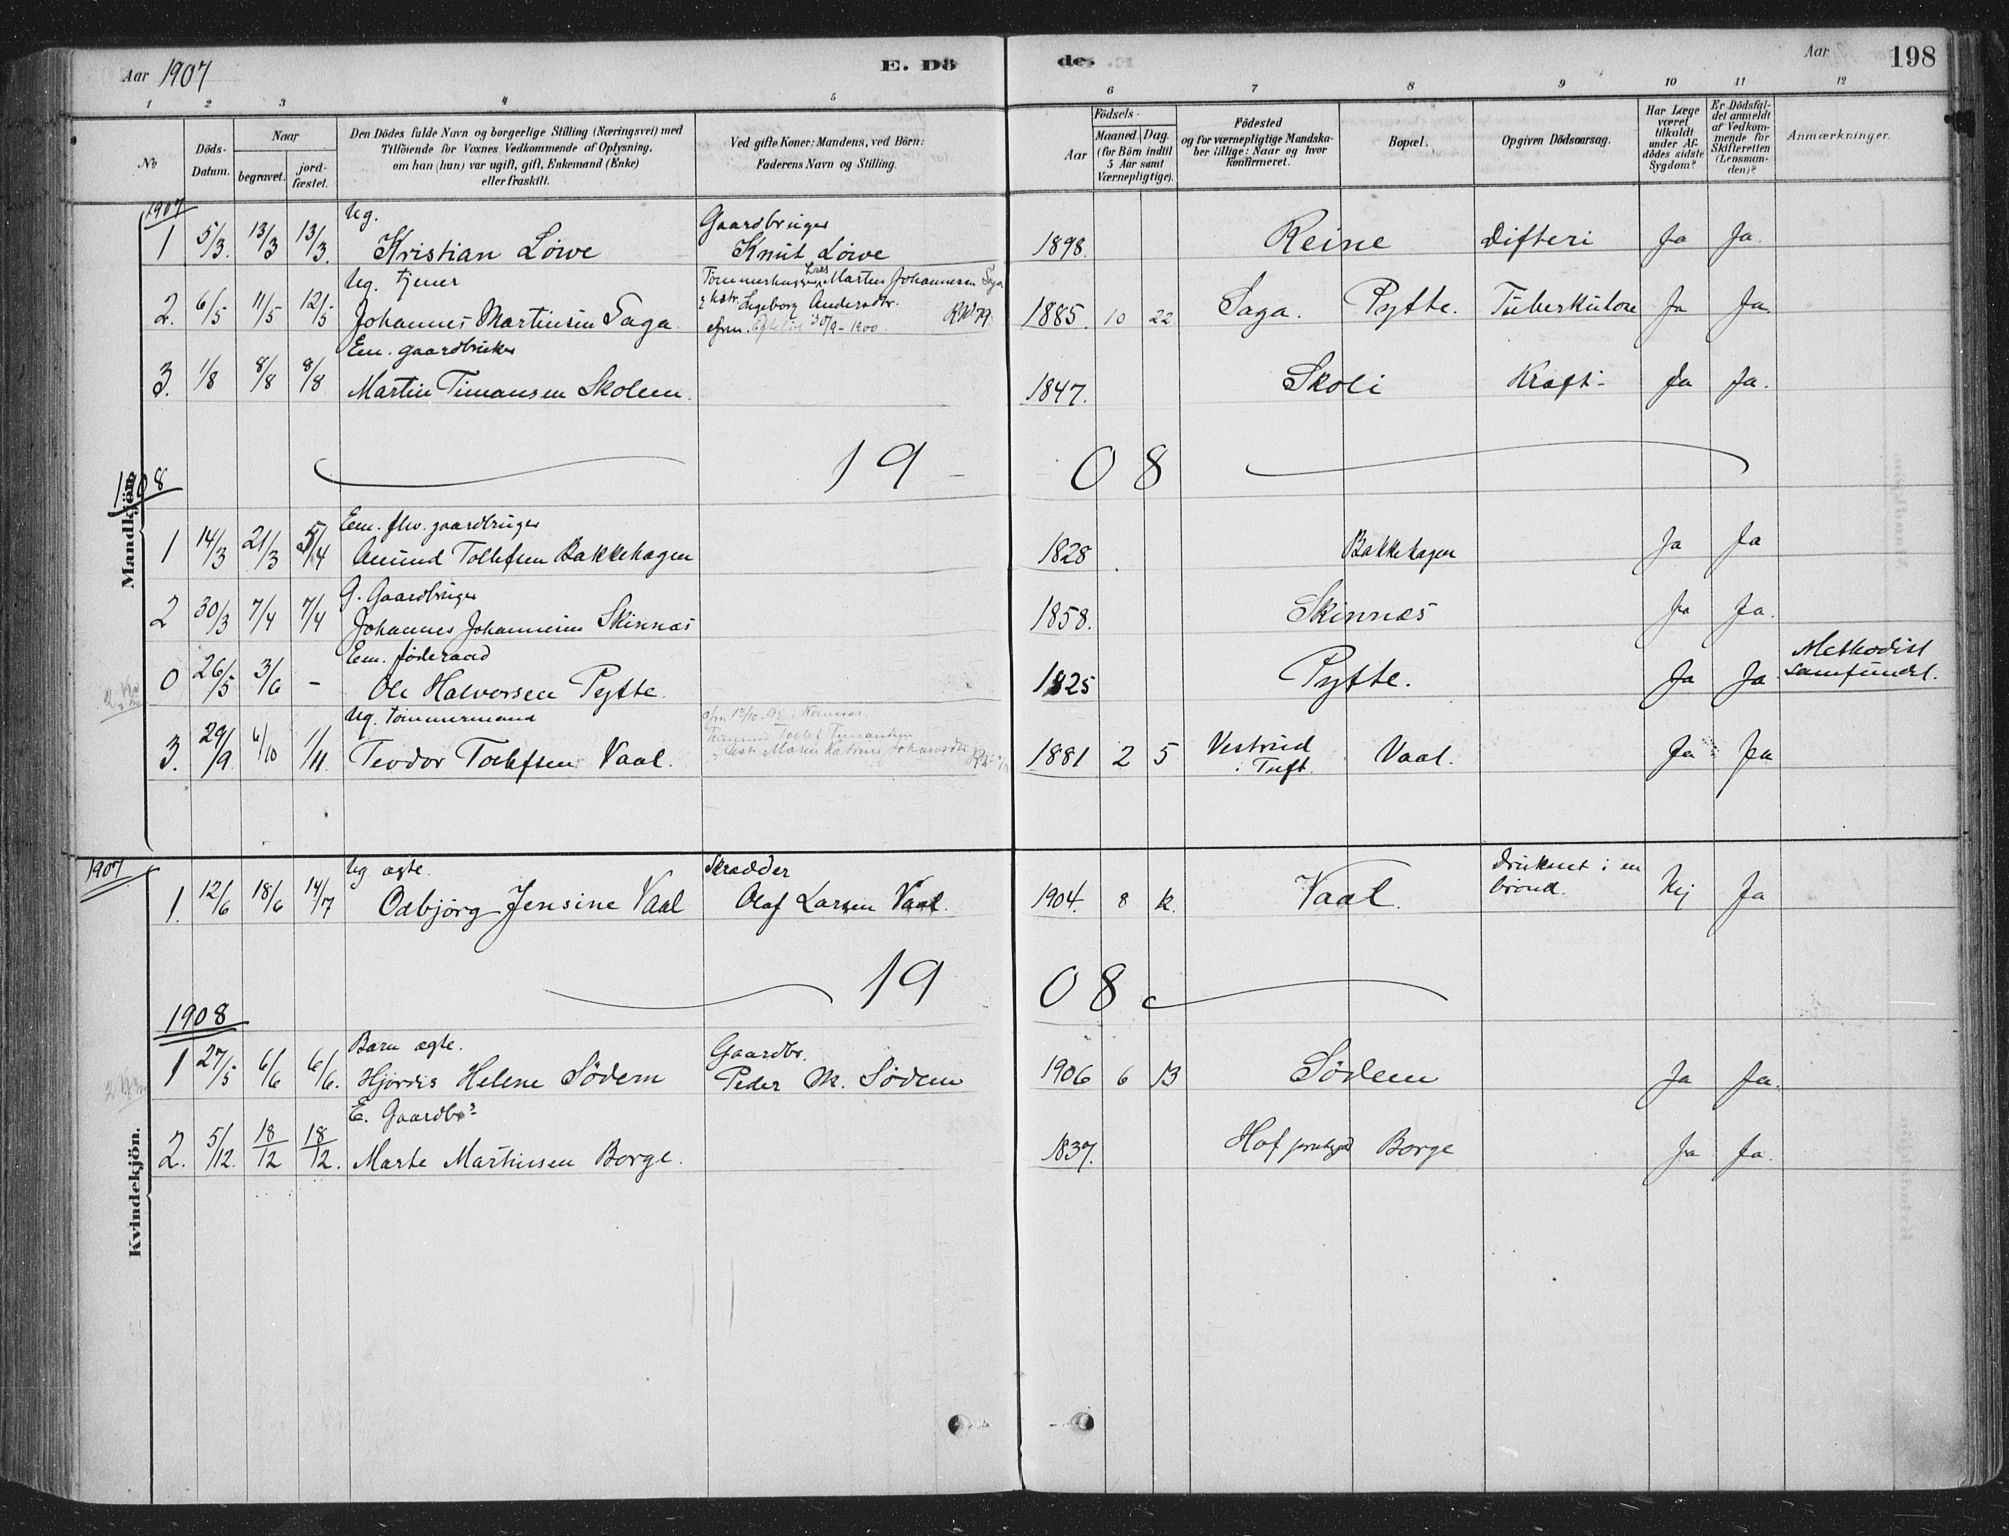 Aar 1907
E. Dö
de.
Aar
198
1 2 3 4 5 6 7 8 9 10 11 12
No
Döds-Datum.
Naar
begravet.
jord-fæstet.
Den Dödes fulde Navn og borgerlige Stilling (Næringsvei) med
Tilföiende for Voxnes Vedkommende af Oplysning,
om han (hun) var ugift, gift, Enkemand (Enke)
eller fraskilt.
Ved gifte Koner: Mandens, ved Börn:
Faderens Navn og Stilling.
Födsels-
Aar
Maaned. Dag.
(for Börn indtil
5 Aar samt
Værnepligtige).
Födested
og for værnepligtige Mandska-
ber tillige: Naar og hvor
konfirmeret.
Bopæl.
Opgiven Dödsaarsag.
Har Læge
været
tilkaldt
under Af-
dödes sidste
Sygdom?
Er Dödsfal-
det anmeldt
af Vedkom-
mende for
Skifteretten
(Lensman-
den)?
Anmærkninger.
Mandkjön.
1907
Ug. Gaardbruger
1 5/3. 13/3 13/3. Kristian Löwe Knut Löwe 1898. Reine Difteri Ja Ja.
Ug. tjener Tømmerhugger Lars Martin Johannesen Saga
& hstr. Ingeborg Andersdtr.
2. 6/5 11/5 12/5 Johannes Martinsen Saga. 30/9-1900. 1885. 10 22 Saga. Pytte. Tuberkulose Ja Ja.
Em. gaardbruker
3. 1/8 8/8 8/8 Martin Timansen Skolem. 1847. Skoli Kræft- Ja Ja.
1908
19 - 08
Em. fhv. gaardbruger
1 14/3 21/3 5/4 Amund Tollefsen Bakkehagen 1828 Bakkehagen Ja Ja
G. Gaardbruger
2 30/3 7/4 7/4 Johannes Johannesen Skinnæs 1858. Skinnæs Ja Ja.
Em. føderaad
0 26/5 3/6 - Ole Halvorsen Pytte. 1825 Pytte. Ja Ja Methodist
samfundet.
Ug. tømmermand
3. 29/9. 6/10 1/11 Teodor Tollefsen Vaal. 1881 2 5 Vestrud
i Tuft. Vaal. Ja Ja
1907
Ug ægte. Skrædder
1. 12/6 18/6 14/7 Odbjörg Jensine Vaal Olaf Larsen Vaal. 1904. 8 12. Vaal. Druknet i en
brønd. Nej Ja
19 08
1908
Barn ægte. Gaardbr.
1 27/5 6/6 6/6. Hjördis Helene Södem Peder M. Södem 1906 6 13 Södem Ja Ja.
E. Gaardbr
2. 5/12. 18/12 18/12. Marte Martinsen Borge. 1837. Hof Borge Ja Ja.
Kvindekjön.